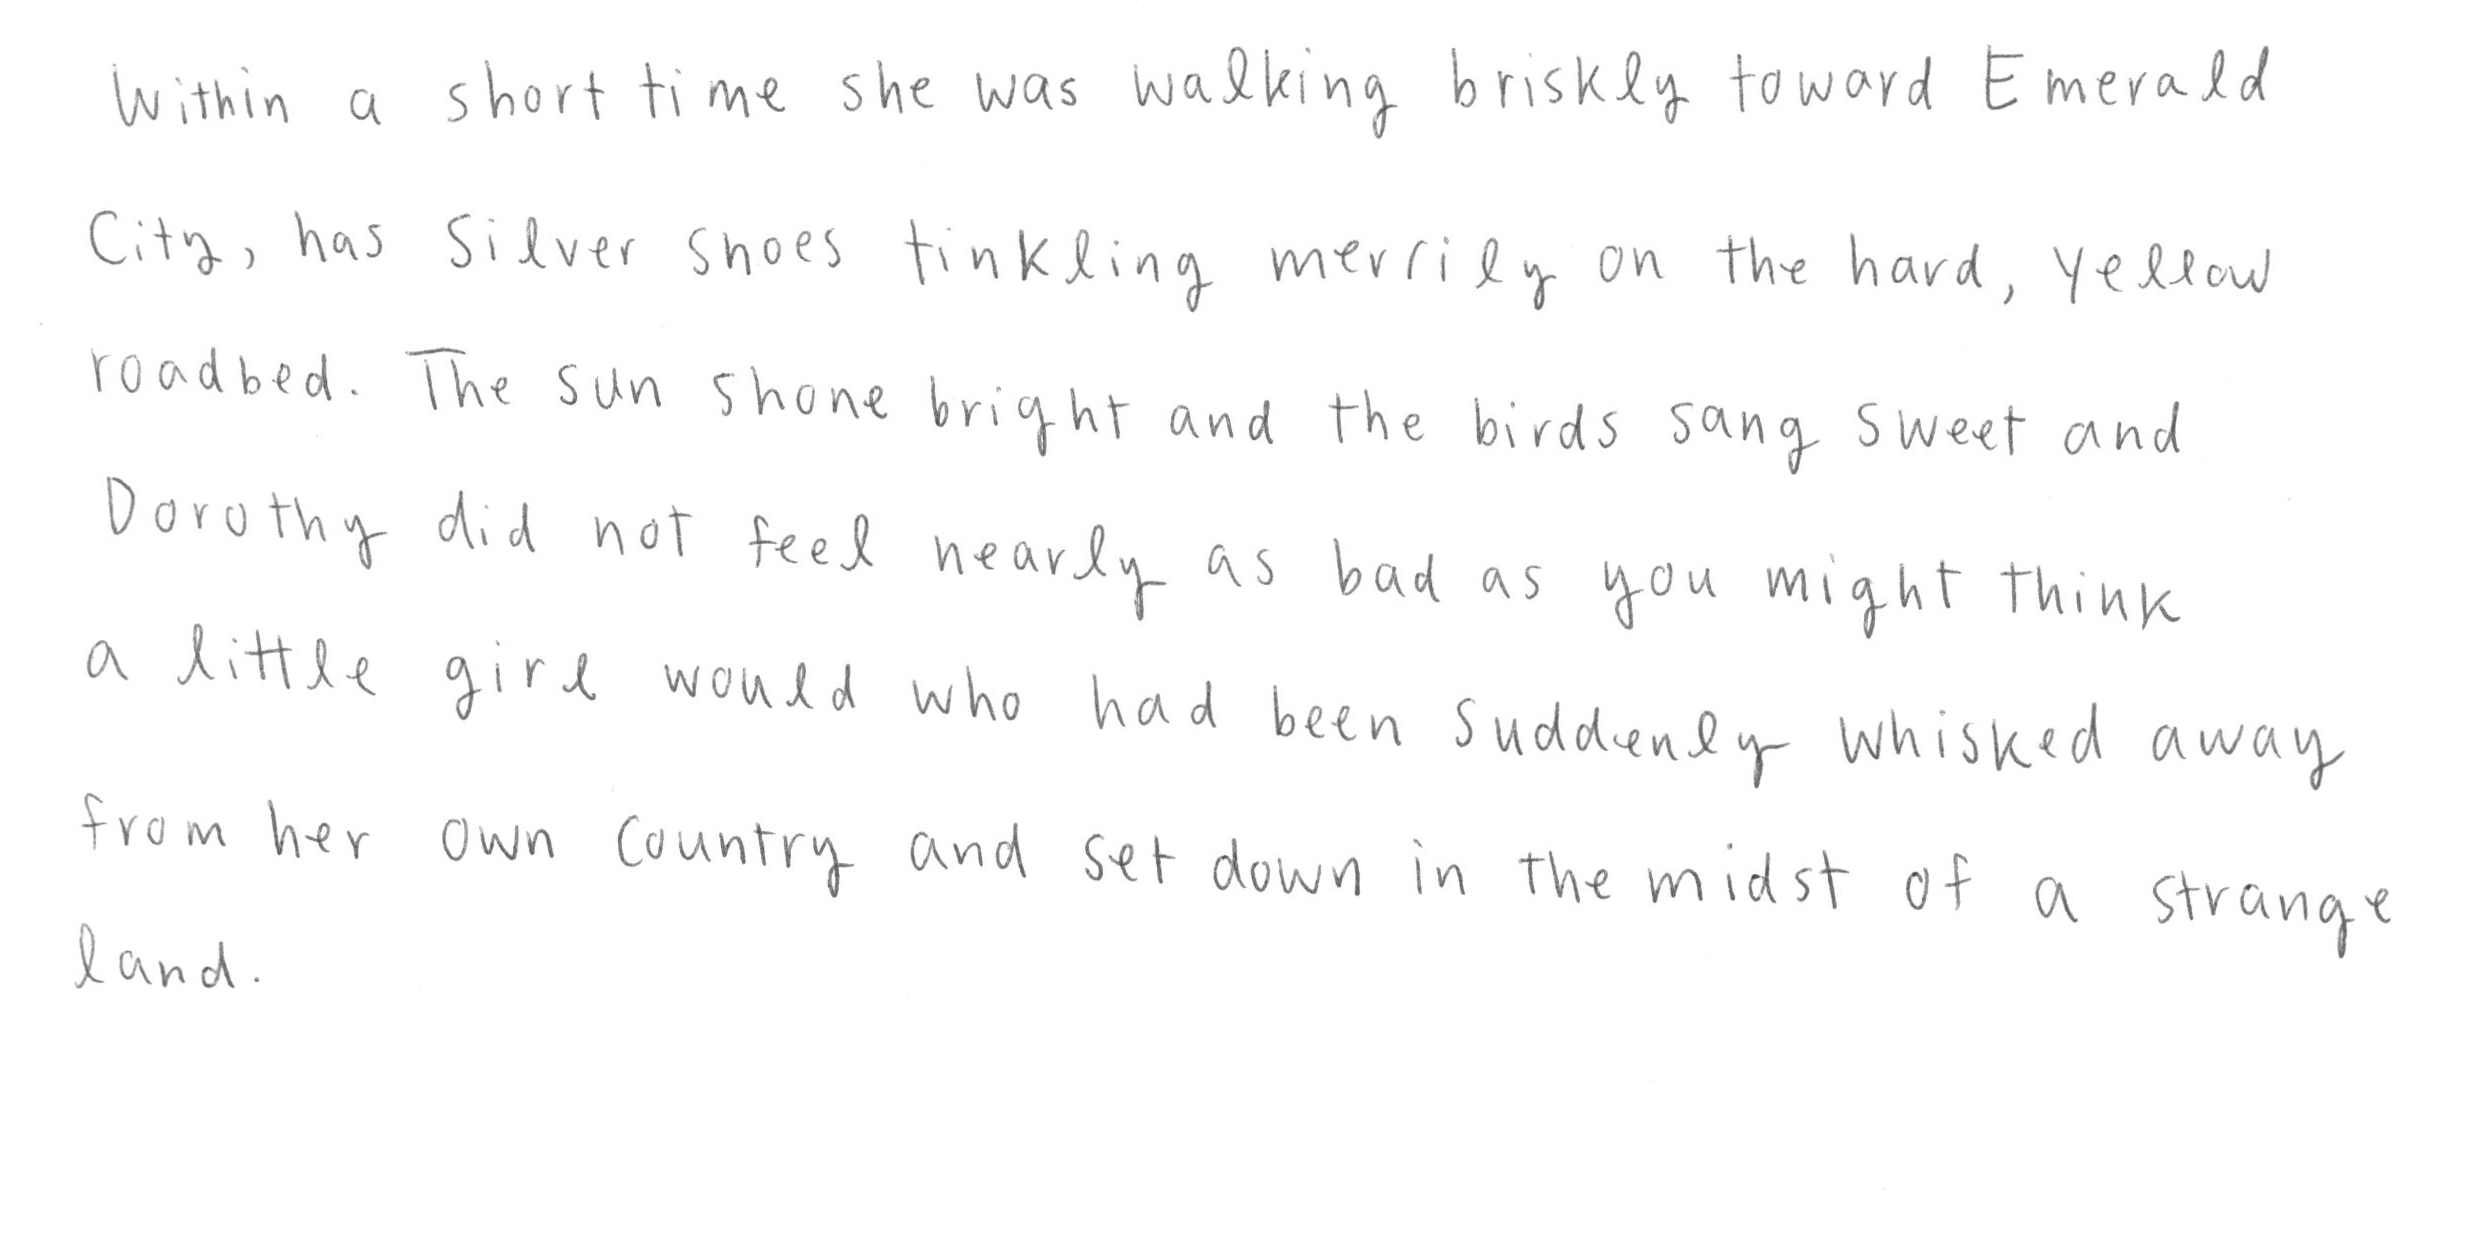 Within a short time she was walking briskly toward Emerald
City, has Silver Shoes tinkling merrily on the hard, yellow
roadbed. The sun shone bright and the birds sang sweet and
Dorothy did not feel nearly as bad as you might think
a little girl would who had been suddenly whisked away
from her own country and set down in the midst of a strange
land.